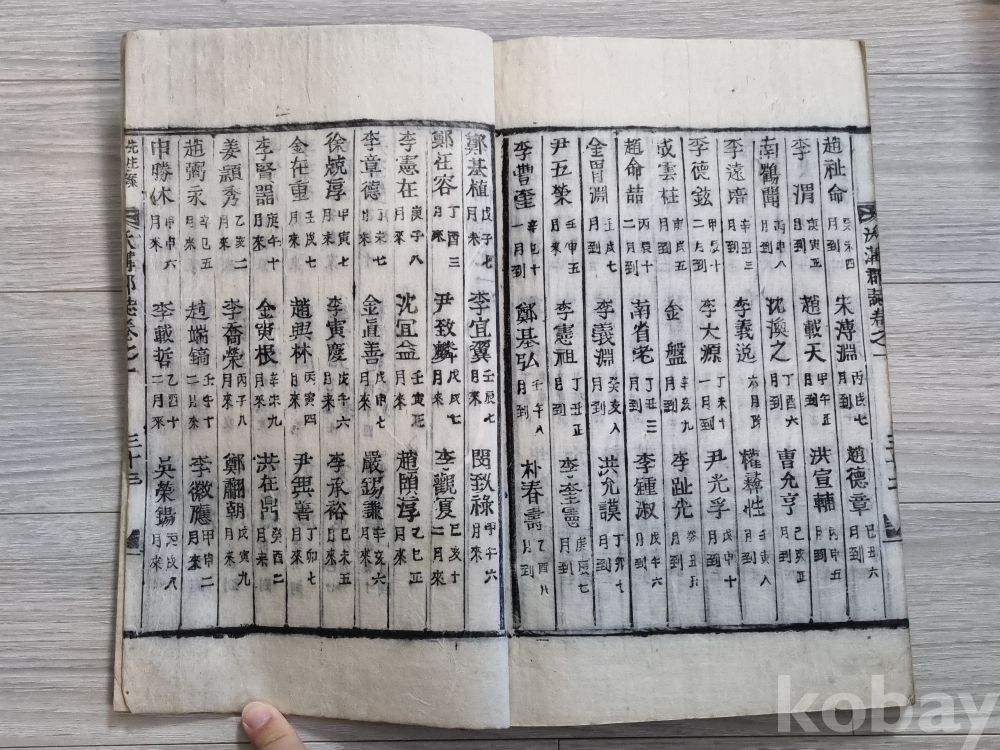 大溝郡誌卷之一
趙祉命 癸未四 朱溥淵 丙戌七月到 趙德章 己丑六月到
李渭 庚寅五月到 趙載天 甲午正月到 洪宣輔 丙申五月到
南鶴聞 丙申八月到 沈渙之 丁酉六月到 曹允亨 己亥正月到
李遠 月到 李義說 月到 權彝性 庚寅八月到
李德鉉 甲辰十二月到 李大源 一月到 尹光孚 戊申十月到
成雲柱 月到 金盤 辛亥九月到 李趾先 癸丑五月到
趙命喆 丙辰十二月到 南省老 丁丑三月到 李鍾淑 丁午六月到
金胃淵 壬戌七月到 李義淵 癸亥八月到 洪允謨 丁卯七月到
尹五榮 壬申五月到 李憲祖 丁丑正月到 李奎 庚辰七月到
李曹奎 辛巳十一月到 鄭基弘 壬午八月到 朴春壽 乙酉八月到
鄭基植 戊子七月來 李宜翼 壬辰七月來 閔致祿 甲午六月來
鄭在容 丁酉三月來 尹致麟 戊戌七月來 李觀夏 己亥十二月來
李憲在 庚子八月來 沈宜益 壬寅正月來 趙頤淳 乙巳正月來
李章德 丁未七月來 金眞善 戊申十月來 嚴錫謙 辛亥六月來
徐兢淳 甲寅七月來 李寅慶 戊午六月來 李承裕 己未五月來
金在重 壬戌七月來 趙興林 丙寅四月來 尹興善 丁卯七月來
李賢器 庚午十月來 金寅根 辛未九月來 洪在鼎 癸酉二月來
姜頴秀 乙亥二月來 李喬榮 丙子八月來 鄭翻朝 戊寅九月來
趙弼永 辛巳五月來 趙端鎬 壬午十二月來 李徵應 甲申二月來
申勝休 甲申六月來 李載哲 乙酉十二月來 吳榮錫 丙戌八月來
先生案
三十三
kobay